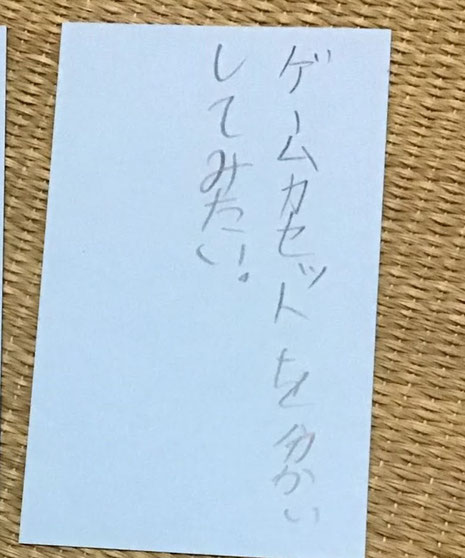 ゲームカセットを分かい
してみたい!